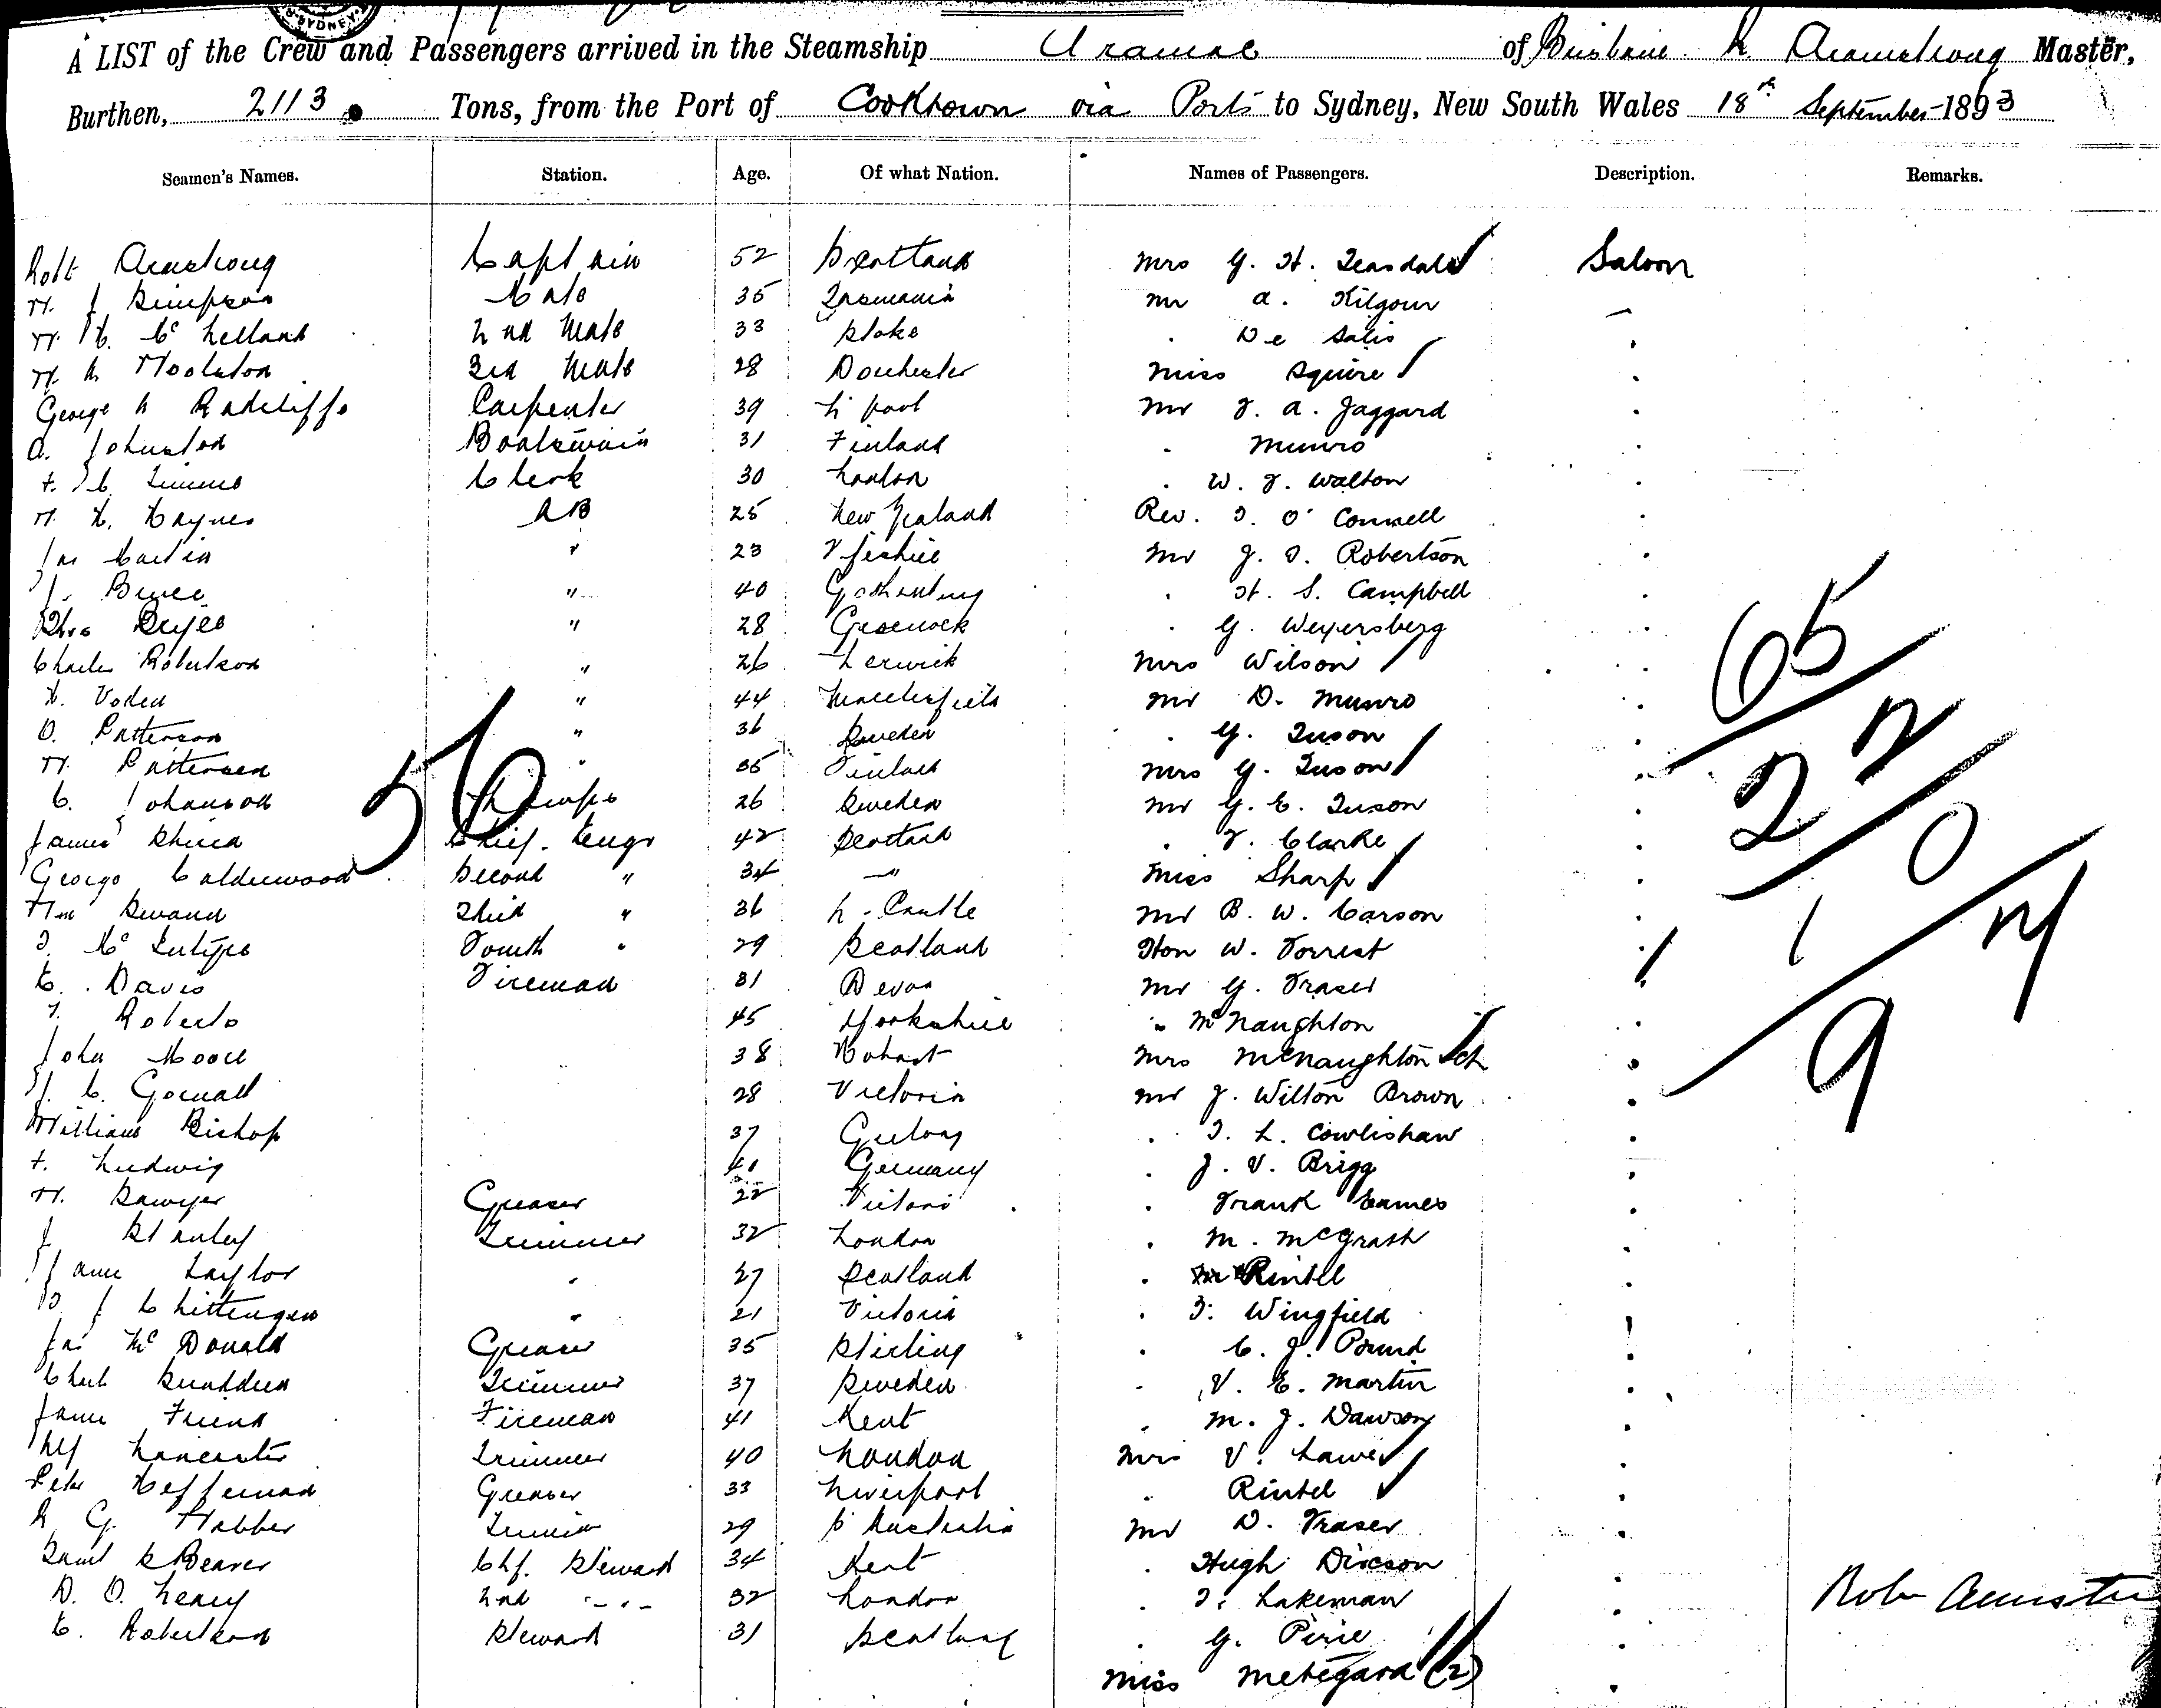 SYDNEY
A LIST of the Crew and Passengers arrived in the Steamship Aramac of Brisbane R Armstrong Master,
Burthen, 2113 Tons, from the Port of Cooktown via Ports to Sydney, New South Wales 18th September 1893
Seamen's Names. Station. Age. Of what Nation. Names of Passengers. Description. Remarks.
Robt Armstrong Captain 52 Scotland Mrs G. H. Teasdale Saloon
W. J Simpson Mate 35 Tasmania Mr A. Kilgour
W. H. Mc Lelland 2nd Mate 33 Stoke . De Salis
W. R Woolston 3rd Mate 28 Dorchester Miss Squire
George H Radcliffe Carpenter 39 L'pool Mr F. A. Jaggard
A. Johnston Boatswain 31 Finland . Munro
F. C. Timms Clerk 30 London . W. F. Walton
W. H. Haynes AB 25 New Zealand Rev. T. O'Connell
Jas Martin " 23 Fifeshire Mr J. T. Robertson
J. Bruce " 40 Gothenburg . H. S. Campbell
" 28 Greenock . G. Weyersberg
Charles Robertson " 26 Lerwick Mrs Wilson
H. Voden " 44 Macclesfield Mr D. Munro
O. Patterson " 36 Sweden . G. Tuson
W. Patterson " 35 Finland Mrs G. Tuson
C. Johanson 26 Sweden Mr G. E. Tuson
James Shiria Chief Engr 42 Scotland . F. Clarke
George Calderwood Second " 34 " Miss Sharp
Wm Sewand Third " 36 N-Castle Mr B. W. Carson
T. McIntyre Fourth " 29 Scotland Hon W. Forrest
E. Davis Fireman 31 Devon Mr G. Fraser
T. Roberts 45 Yorkshire " McNaughton
John Moore 38 Hobart Mrs McNaughton & ch
J. C. Gornall 28 Victoria Mr J. Wilton Brown
William Bishop 37 Geelong . T. L. Cowlishaw
F. Ludwig 41 Germany . J. V. Brigg
W. Sawyer Greaser 22 Victoria . Frank Eames
J Stanley Trimmer 32 London . M. McGrath
James Taylor " 27 Scotland . Rintel
J Chittenden " 21 Victoria . T. Wingfield
Jas McDonald Greaser 35 Stirling . C. J. Pound
Charles Trimmer 37 Sweden . V. E. Martin
James Friend Fireman 41 Kent . M. J. Dawson
Alf Lancaster Trimmer 40 London Mrs V. Lawes
Peter Heffernan Greaser 33 Liverpool . Rintel
R G. Webber Trimmer 29 S Australia Mr D. Fraser
Saml S Beaver Chf. Steward 34 Kent . Hugh Dixson
D. O. Leary 2nd " 32 London . T. Lakeman
E. Robertson Steward 31 Scotland . G. Pirie
Miss Metegard (2)
56
65
22
20
1
14
9